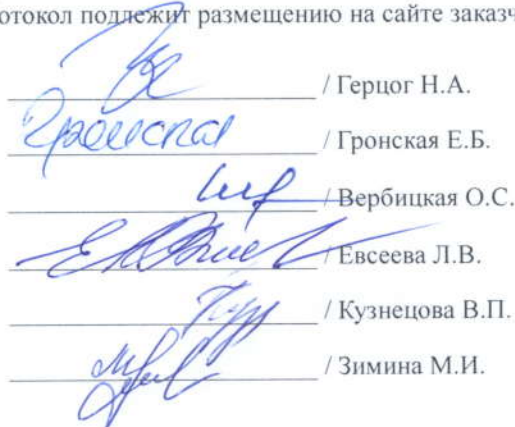 отокол подлежит размещению на сайте заказч
/ Герцог Н.А.
Гронская / Гронская Е.Б.
/ Вербицкая О.С.
/ Евсеева Л.В.
/ Кузнецова В.П.
/ Зимина М.И.